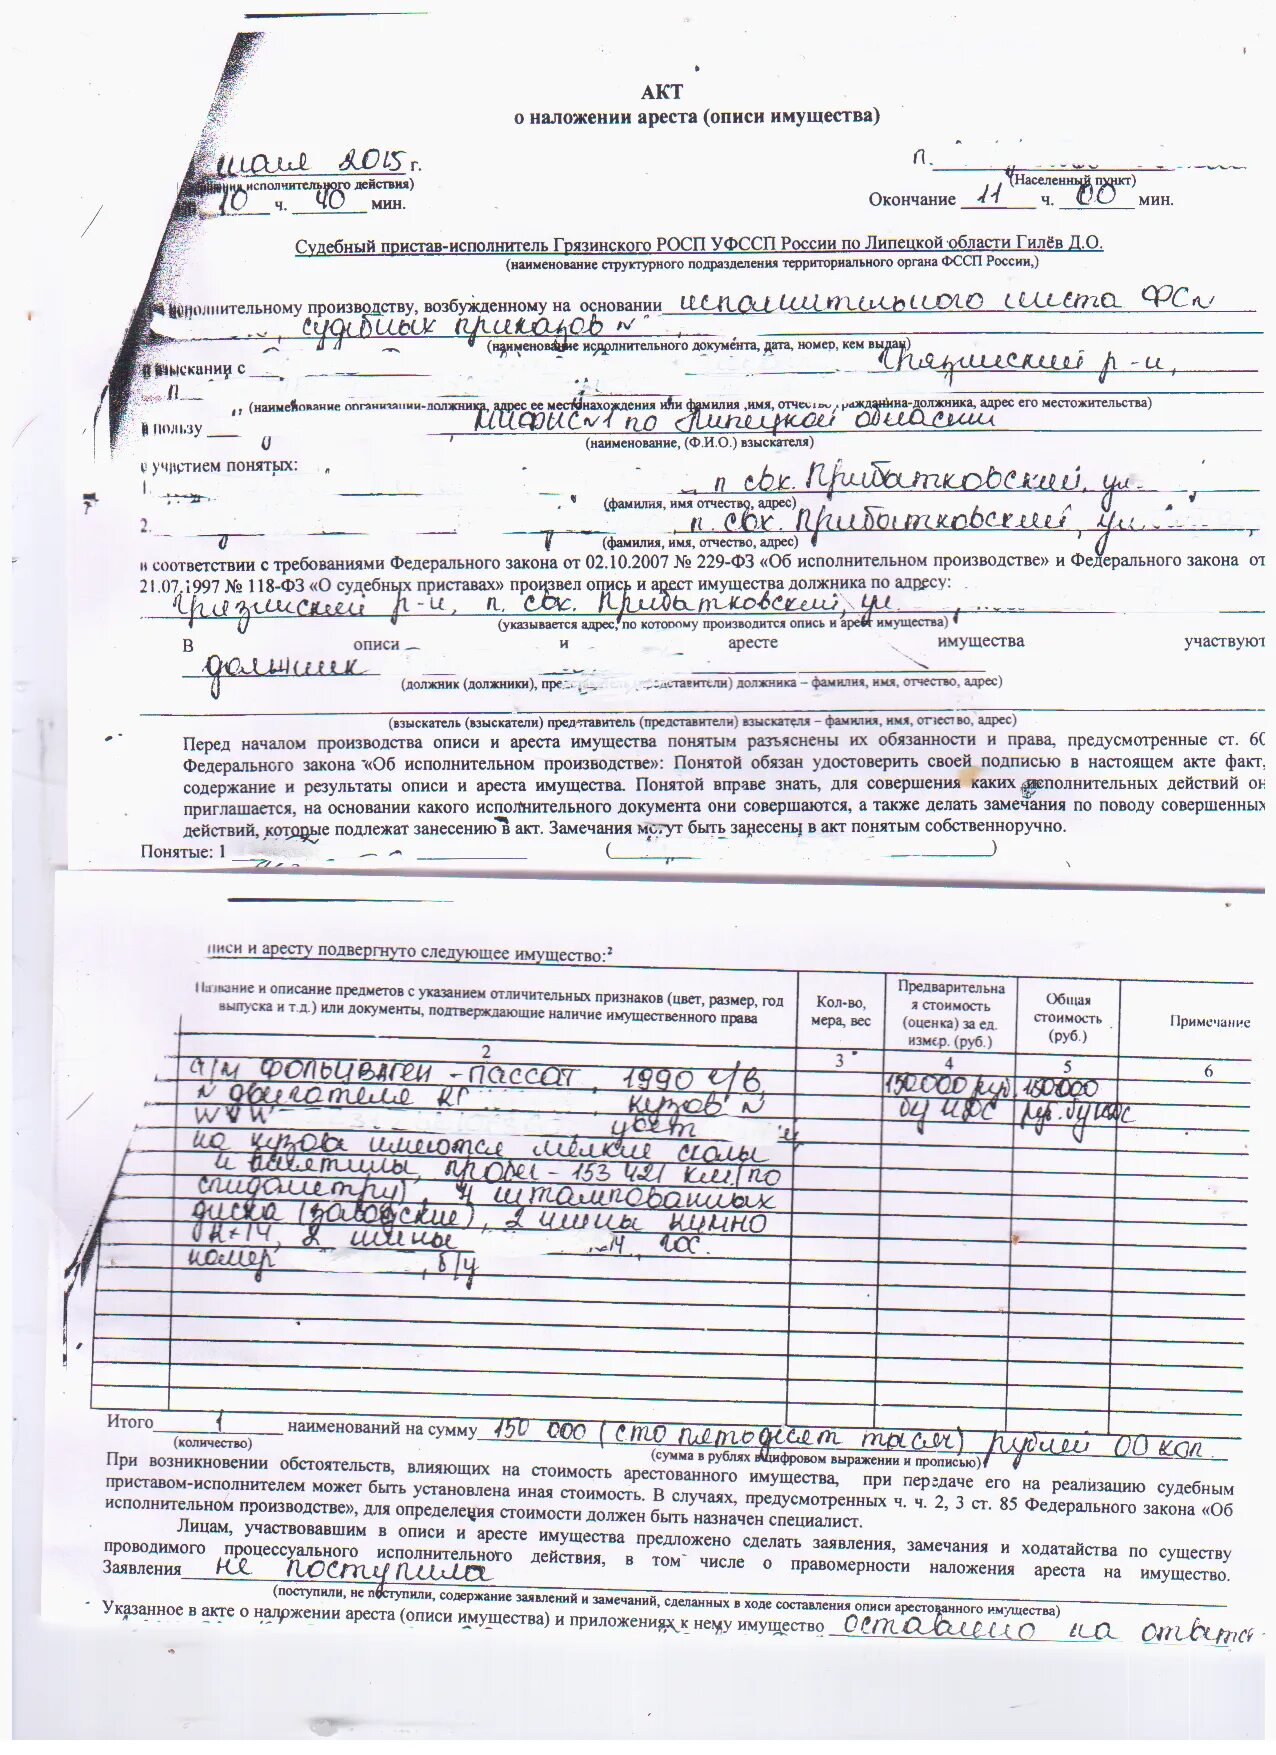 АКТ
о наложении ареста (описи имущества)
2015 г. П.
исполнительного действия) (Населенный пункт)
10 ч. 40 мин. Окончание 11 ч. 00 мин.
Судебный пристав-исполнитель Грязинского РОСП УФССП России по Липецкой области Гилёв Д.О.
(наименование структурного подразделения территориального органа ФССП России,)
исполнительному производству, возбужденному на основании исполнительного листа ФС№
, судебных приказов №
(наименование исполнительного документа, дата, номер, кем выдан)
взыскании с Грязинский р-н,
П
(наименование организации-должника, адрес ее местонахождения или фамилия ,имя, отчество гражданина-должника, адрес его местожительства)
в пользу МИФНС№1 по Липецкой области
(наименование, (Ф.И.О.) взыскателя)
с участием понятых:
1 , п свх. Прибатковский, ул.
(фамилия, имя отчество, адрес)
2. , п. свх. Прибатковский, ул.
(фамилия, имя, отчество, адрес)
в соответствии с требованиями Федерального закона от 02.10.2007 № 229-ФЗ «Об исполнительном производстве» и Федерального закона от
21.07.1997 № 118-ФЗ «О судебных приставах» произвел опись и арест имущества должника по адресу:
Грязинский р-н, п. свх. Прибатковский, ул.
(указывается адрес, по которому производится опись и арест имущества)
В описи и аресте имущества участвуют
должник
(должник (должники), представитель (представители) должника – фамилия, имя, отчество, адрес)
(взыскатель (взыскатели) представитель (представители) взыскателя – фамилия, имя, отчество, адрес)
Перед началом производства описи и ареста имущества понятым разъяснены их обязанности и права, предусмотренные ст. 60
Федерального закона «Об исполнительном производстве»: Понятой обязан удостоверить своей подписью в настоящем акте факт,
содержание и результаты описи и ареста имущества. Понятой вправе знать, для совершения каких исполнительных действий он
приглашается, на основании какого исполнительного документа они совершаются, а также делать замечания по поводу совершенных
действий, которые подлежат занесению в акт. Замечания могут быть занесены в акт понятым собственноручно.
Понятые: 1 ( )
писи и аресту подвергнуто следующее имущество:²
Название и описание предметов с указанием отличительных признаков (цвет, размер, год
выпуска и т.д.) или документы, подтверждающие наличие имущественного права
Кол-во,
мера, вес
Предварительна
я стоимость
(оценка) за ед.
измер. (руб.)
Общая
стоимость
(руб.)
Примечание
2 3 4 5 6
а/м ФОЛЬЦВАГЕН - ПАССАТ, 1990 г/в, 150000 руб. 150000
№ двигателя , кузов № бу НДС руб. бу НДС
WVW , цвет
на кузове имеются мелкие сколы
и вмятины, пробег - 153 421 км. (по
спидометру), 4 штампованных
диска (заводские), 2 шины кумно
R-14, 2 шины -14, гос.
номер , б/у
Итого 1 наименований на сумму 150 000 (сто пятьдесят тысяч) рублей 00 коп.
(количество) (сумма в рублях в цифровом выражении и прописью)
При возникновении обстоятельств, влияющих на стоимость арестованного имущества, при передаче его на реализацию судебным
приставом-исполнителем может быть установлена иная стоимость. В случаях, предусмотренных ч. ч. 2, 3 ст. 85 Федерального закона «Об
исполнительном производстве», для определения стоимости должен быть назначен специалист.
Лицам, участвовавшим в описи и аресте имущества предложено сделать заявления, замечания и ходатайства по существу
проводимого процессуального исполнительного действия, в том числе о правомерности наложения ареста на имущество.
Заявления не поступила
(поступили, не поступили, содержание заявлений и замечаний, сделанных в ходе составления описи арестованного имущества)
Указанное в акте о наложении ареста (описи имущества) и приложениях к нему имущество оставлено на ответст